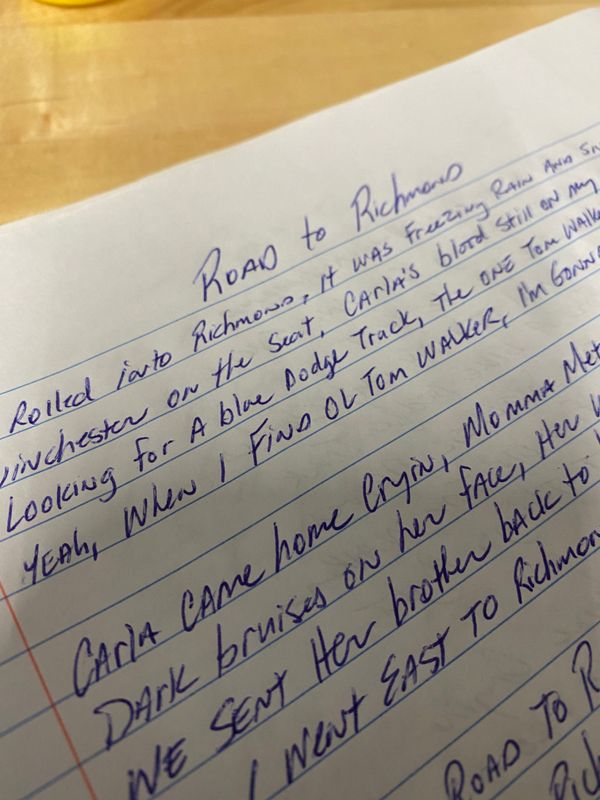 Road to Richmond
Rolled into Richmond, it was freezing rain and
Winchester on the seat, Carla's blood still on my
Looking for a blue Dodge Truck, the one Tom
Yeah, when I find Ol Tom Walker, I'm gonna
Carla came home cryin, Momma
Dark bruises on her face, her
We sent her brother back to
I went East to Richmond
Road to